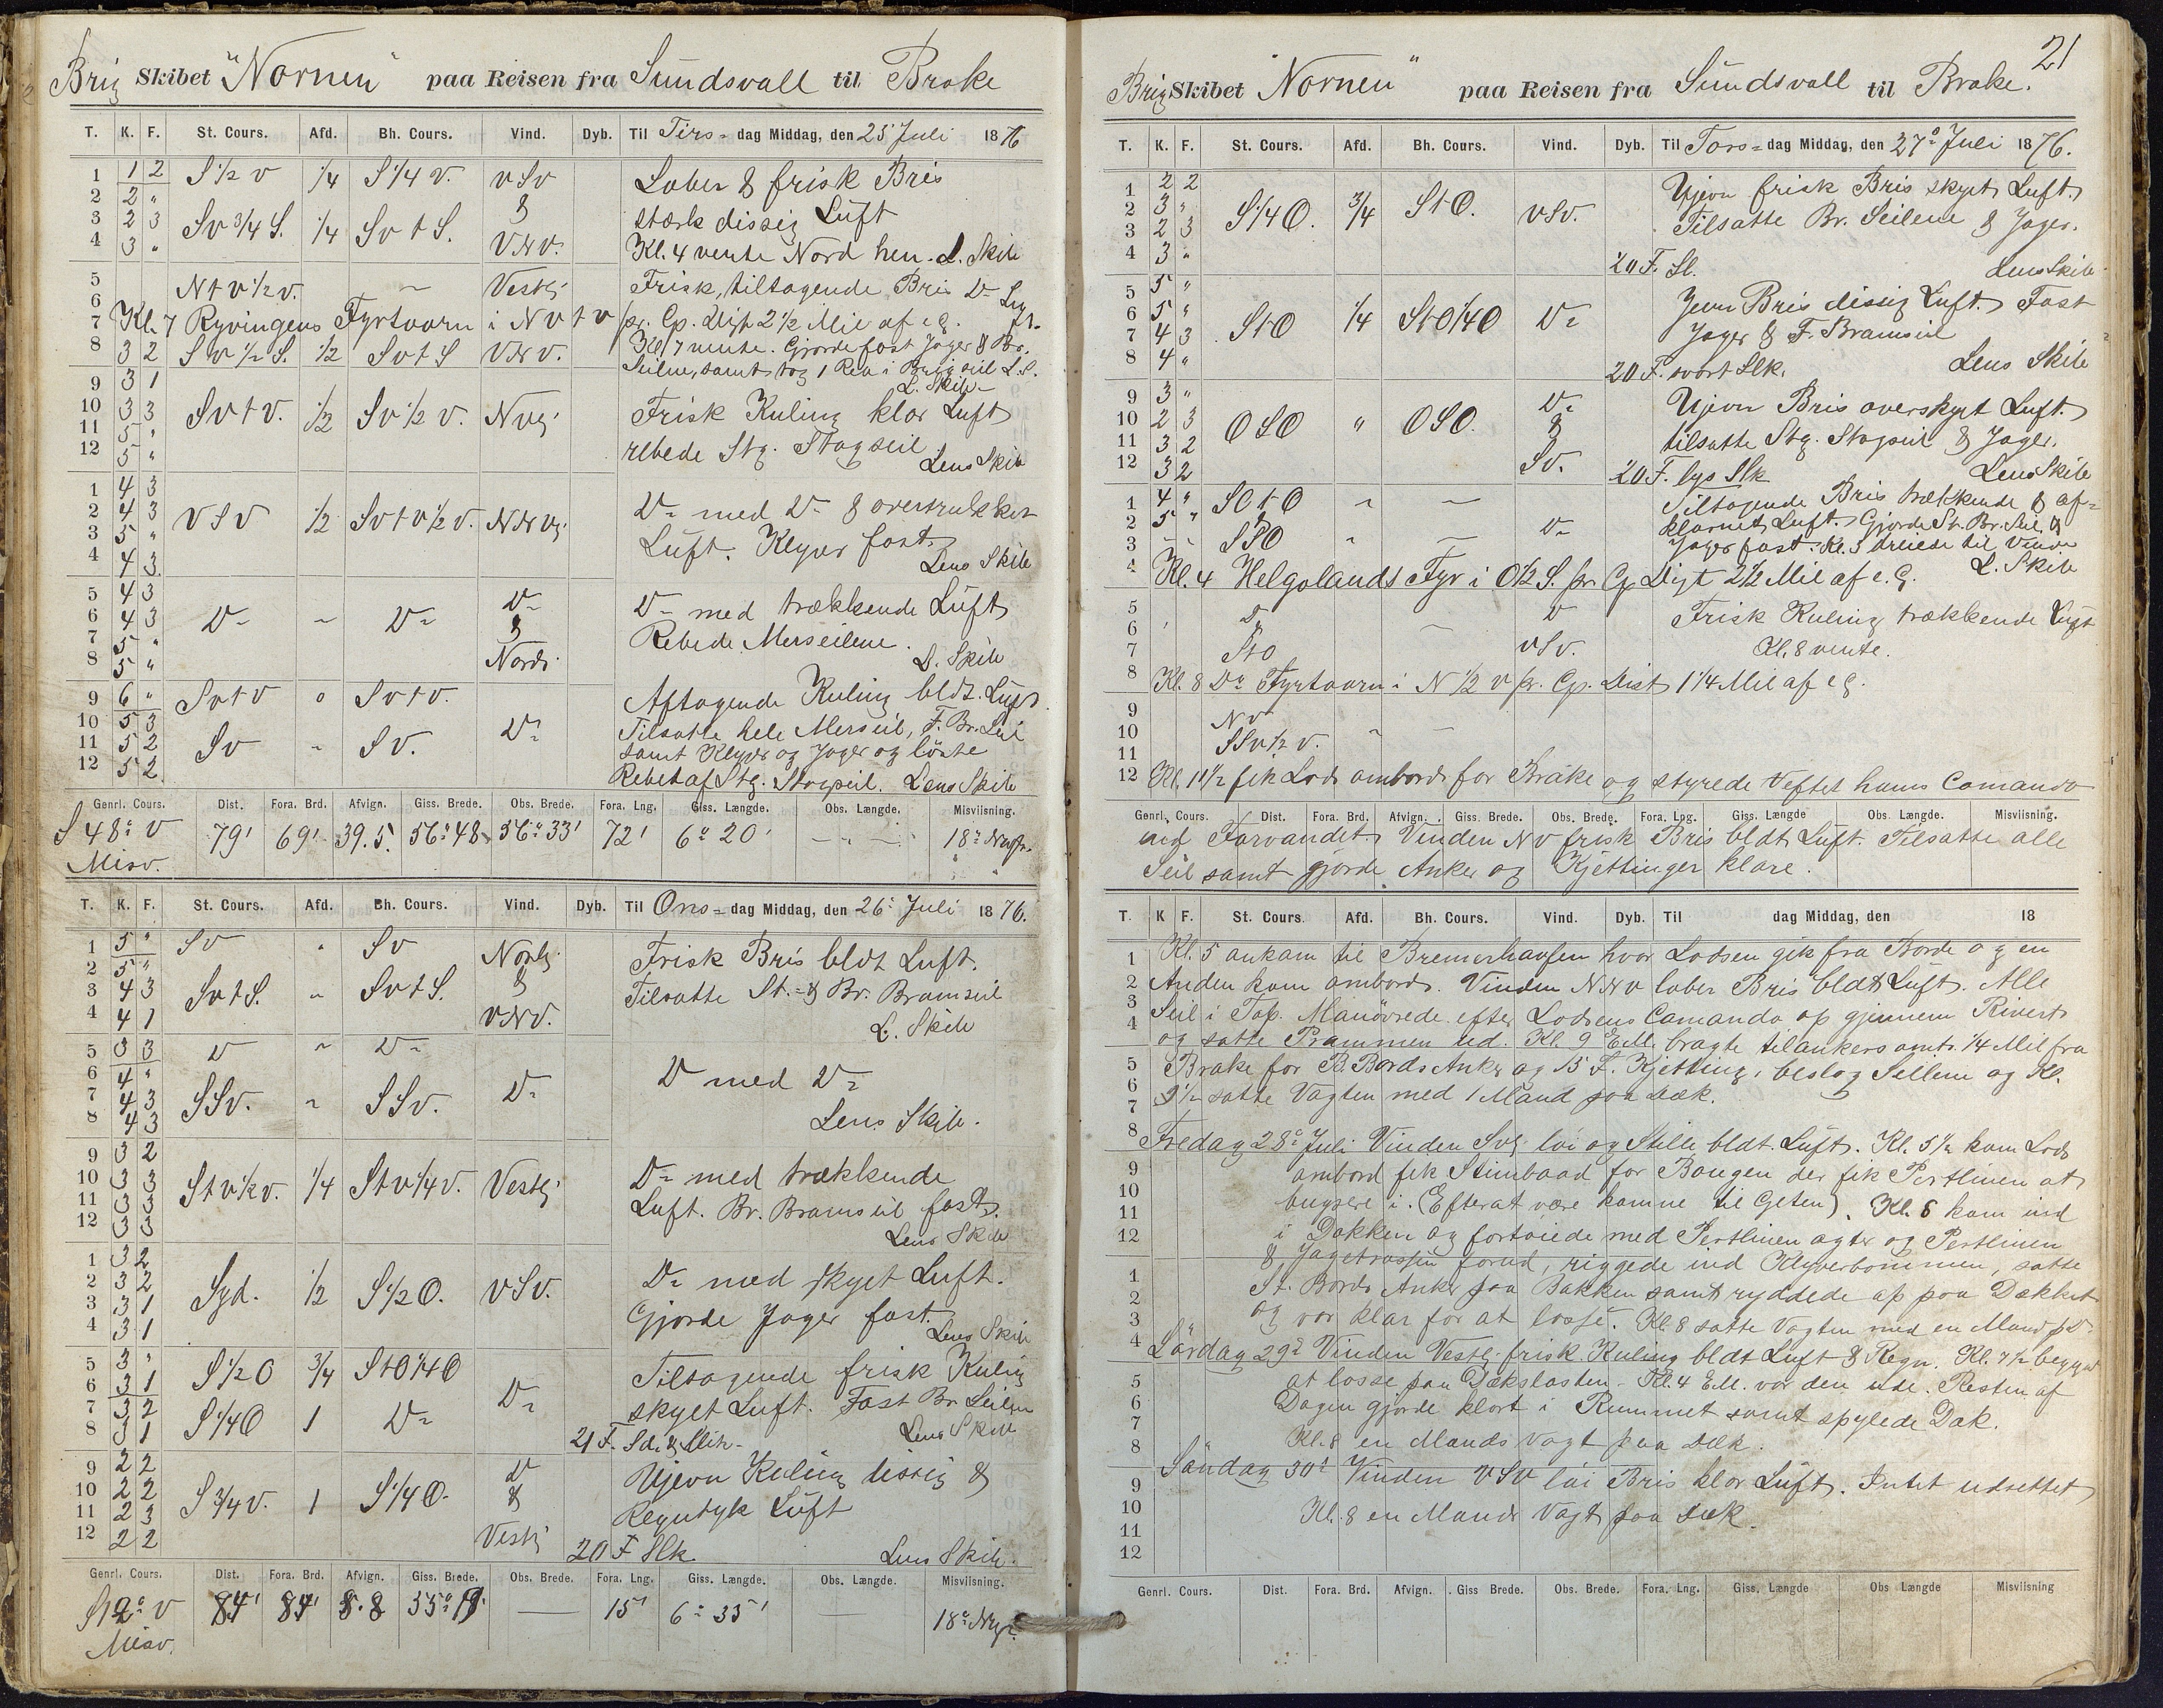 Brig Skibet "Nornen" paa Reisen fra Sundsvall til Brake
T. K. F. St. Cours. Afd. Bh. Cours. Vind. Dyb. Til Tirs- dag Middag, den 25 Juli 1876
1 1 2 S 1/2 V 1/4 S 1/4 V. VSV Laber & frisk Bris
2 2 " & stærk dissig Luft
3 2 3 SV 3/4 S. 1/4 SV t S.
4 3 " VNV. Kl. 4 vente Nord hen. L. Skib
5 NtV 1/2 V. Vestlj Frisk, tiltagende Bris D- Luft.
6
7 Kl. 7 Ryvingens Fyrtaarn i NVtV pr. Cp. Digt 2 1/2 Mil af e.g.
8 3 2 SV 1/2 S. 1/2 SVtS VNV. Kl 7 vente. Gjorde fast Jager & Br.
Seilene, samt tog 1 Reb i Brigseil L.S.
L. Skib
9 3 1
10 3 3 SVtV. 1/2 SV 1/2 V. NVlj Frisk Kuling klar Luft
11 5 " rebede Stg. Stagseil
12 5 " Lens Skib
1 4 3
2 4 3 VSV 1/2 SVtV 1/2 V. NNVlj D- med D- & overtrukket
3 5 " Luft. Klyver fast.
4 4 3 Lens Skib
5 4 3 D-
6 4 3 D- D- & D- med trækkende Luft
7 5 " Rebede Merseilene.
8 5 " Nordl. L. Skib
9 6 " SVtV " SVtV. Aftagende Kuling bldt. Luft.
10 5 3 D- Tilsatte hele Merseil, F. Br. Seil
11 5 2 SV " SV. samt Klyver og Jager og löste
12 5 2 Rebet af Stg. Stagseil. Lens Skib
Genrl. Cours. Dist. Fora. Brd. Afvign. Giss. Brede. Obs. Brede. Fora. Lng. Giss. Længde. Obs. Længde. Misviisning.
S 48° V 79' 69' 39.5. 56° 48 56° 33' 72' 6° 20'
Misv.
T. K. F. St. Cours. Afd. Bh. Cours. Vind. Dyb. Til Ons- dag Middag, den 26 Juli 1876.
1 5 " SV " SV Nordlj. Frisk Bris bldt Luft.
2 5 "
3 4 3 SVtS. " SVtS. & Tilsatte St. & Br. Bramseil
4 4 1 VNV. L. Skib
5 3 3 D " D-
6 4 " D- D med D-
7 4 3 SSV. " SSV.
8 4 3 Lens Skib.
9 3 2
10 3 3 StV 1/2 V. 1/4 StV 1/4 V. Vestlj D- med trækkende
11 3 3 Luft. Br. Bramseil fast.
12 3 3 Lens Skib
1 3 2
2 3 2 Syd. 1/2 S 1/2 O. VSV. D- med skyet Luft.
3 3 1 Gjorde Jager fast.
4 3 1 Lens Skib
5 3 " S 1/2 O 3/4 StO 1/4 O Tiltagende frisk Kuling
6 3 1 D-
7 3 2 S 1/4 O 1 D- skyet Luft. Fast Br Seilene
8 3 1 21 F. Sd. & Slik. Lens Skib
9 2 2 D
10 2 2 S 3/4 V. 1 S 1/4 O. & Ujevn Kuling dissig &
11 2 3 Regntyk Luft
12 2 2 Vestlj 20 F Slk. Lens Skib.
Genrl. Cours. Dist. Fora. Brd. Afvign. Giss. Brede. Obs. Brede. Fora. Lng. Giss. Længde. Obs. Længde. Misviisning.
S 12° V 84' 84' 8.8 55° 19' 15' 6° 35'
Misv.
21
Brig Skibet "Nornen" paa Reisen fra Sundsvall til Brake.
T. K. F. St. Cours. Afd. Bh. Cours. Vind. Dyb. Til Tors- dag Middag, den 27° Juli 1876.
1 2 2 Ujevn frisk Bris skyet Luft.
2 3 " S 1/4 O. 3/4 StO. VSV. Tilsatte Br. Seilene & Jager.
3 2 3
4 3 " 20 F. Sl. Lens Skib
5 5 " Jevn Bris dissig Luft. Fast
6 5 " StO 1/4 StO 1/4 O D- Jager & F. Bramseil
7 4 3
8 4 " 20 F. svart Slk. Lens Skib
9 3 " D- Ujevn Bris overskyet Luft.
10 2 3 OSO " OSO. & tilsatte Stg. Stagseil & Jager.
11 3 2
12 3 2 SV. 20 F. lys Slk Lens Skib
1 4 " SOtO Tiltagende Bris trækkende & af-
2 5 " & D- klarnet Luft. Gjorde St. Br. Seil &
3 SSO Jager fast. Kl. 3 dreiede til Vinden
4 Kl. 4 Helgolands Fyr i O 1/2 S. pr. Cp Digt 2 1/2 Mil af e.g. L. Skib
5 D D Frisk Kuling trækkende Luft
6
7 StO VSV. Kl. 8 vente.
8 Kl. 8 Do Fyrtaarn i N 1/2 V pr. Cp. Dist 1 1/4 Mil af e.g.
9 NV
10 SSV 1/2 V.
11
12 Kl. 11 1/2 fik Lods ombord for Brake og styrede efter hans Comando
Genrl. Cours. Dist. Fora. Brd. Afvign. Giss. Brede. Obs. Brede. Fora. Lng. Giss. Længde Obs. Længde. Misviisning.
ad Farvandet. Vinden NV frisk Bris bldt Luft. Tilsatte alle
Seil samt gjorde Anker og Kjettinger klare.
T. K F. St. Cours. Afd. Bh. Cours. Vind. Dyb. Til dag Middag, den 18
1 Kl. 5 ankom til Bremerhafen hvor Lodsen gik fra Borde og en
2 Anden kom ombord. Vinden NNV laber Bris bldt Luft. Alle
3 Seil i Top. Manövrede efter Lodsens Comando op gjennem Rivert
4 og satte Prammen ud. Kl. 9 E.M. bragte tilankers omtr. 1/4 Mil fra
5 Brake for B.Bords Anker og 15 F. Kjetting, beslog Seilene og Kl.
6 9 1/2 satte Vagten med 1 Mand paa Dæk.
7
8 Fredag 28° Juli Vinden SVlj. löi og Stille bldt. Luft. Kl. 5 1/2 kom Lods
9 ombord fik Stimbaad for Bougen der fik Pertlinen at
10 bugsere i. (Efterat være komne til Geten). Kl. 6 kom ind
11 i Dokken og fortøiede med Pertlinen agter og Pertlinen
12 & Jagetrossen forud, riggede ind Klyverbommen, satte
1 St. Bords Anker paa Bakken samt ryddede op paa Dækket
2 og var klar for at losse. Kl. 8 satte Vagten med en Mand p. D.
3
4 Lördag 29° Vinden Vestlj. frisk Kuling bldt Luft & Regn. Kl. 7 1/2 begyndt
5 at losse paa Dækslasten. Kl. 4 E.M. var den ude. Resten af
6 Dagen gjorde klart i Rummet samt spylede Dæk.
7 Kl. 8 en Mands Vagt paa Dæk.
8 Söndag 30° Vinden VSV löi Bris klar Luft. Intet udrettet
9
10 Kl. 8 en Mands Vagt paa Dæk.
11
12
Genrl. Cours. Dist. Fora. Brd. Afvign. Giss Brede. Obs. Brede. Fora. Lng. Giss. Længde Obs Længde Misviisning